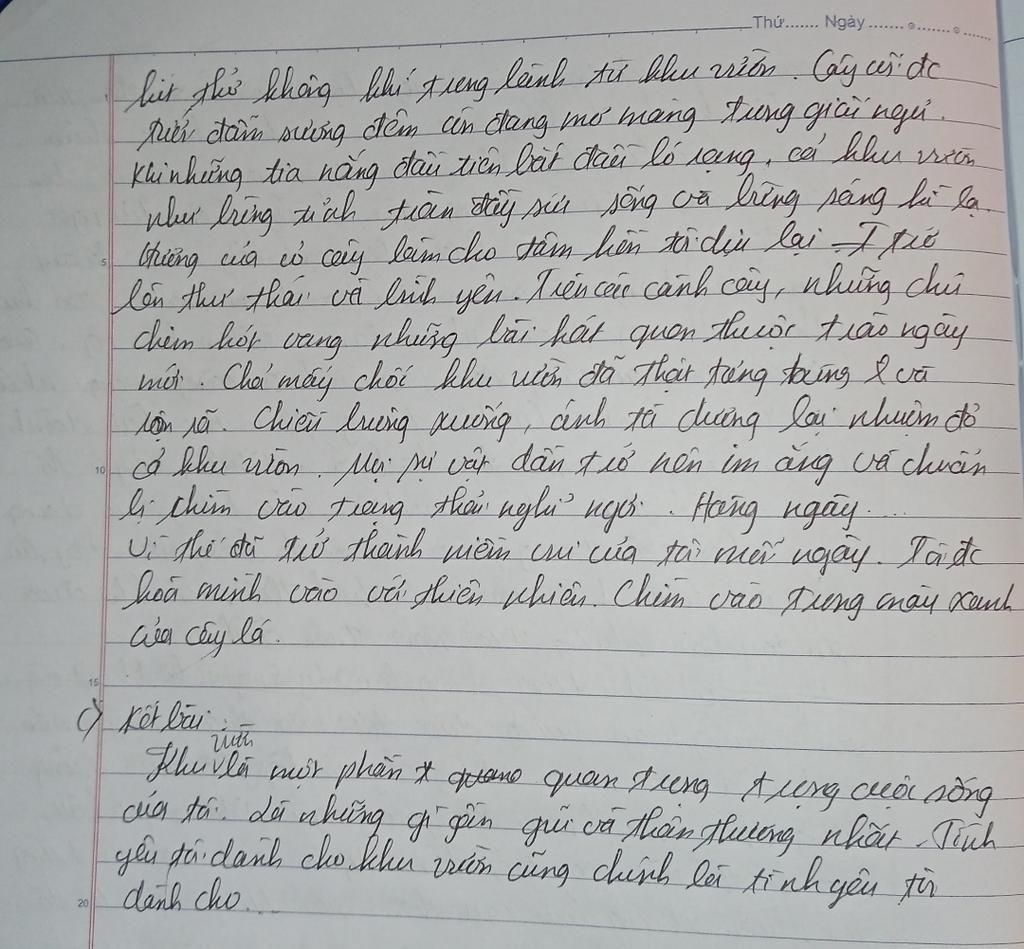 Thứ....... Ngày........
hít thở không khí trong lành từ khu vườn. Cây cối đc
tưới đẫm sương đêm còn đang mơ màng trong giấc ngủ.
Khi những tia nắng đầu tiên bắt đầu ló rạng, cả khu vườn
như bừng tỉnh tràn đầy sức sống và bừng sáng kì lạ.
Hương của cỏ cây làm cho tâm hồn tôi dịu lại trở
lên thư thái và bình yên. Trên các cành cây, những chú
chim hót vang những bài hát quen thuộc chào ngày
mới. Chả mấy chốc khu vườn đã thật tưng bừng và
rộn rã. Chiều buông xuống, ánh tà dương lại nhuộm đỏ
10 cả khu vườn. Mọi sự vật dần trở nên im ắng và chuẩn
bị chìm vào trạng thái nghỉ ngơi. Hàng ngày...
Vì thế đã trở thành niềm vui của tôi mỗi ngày. Tôi đc
hoà mình vào với thiên nhiên. Chìm vào trong màu xanh
của cây lá.
15
c) Kết bài
Khu vườn là một phần quan trọng trong cuộc sống
của tôi. Là những gì gần gũi và thân thương nhất. Tình
yêu tôi dành cho khu vườn cũng chính là tình yêu tôi
20 dành cho...